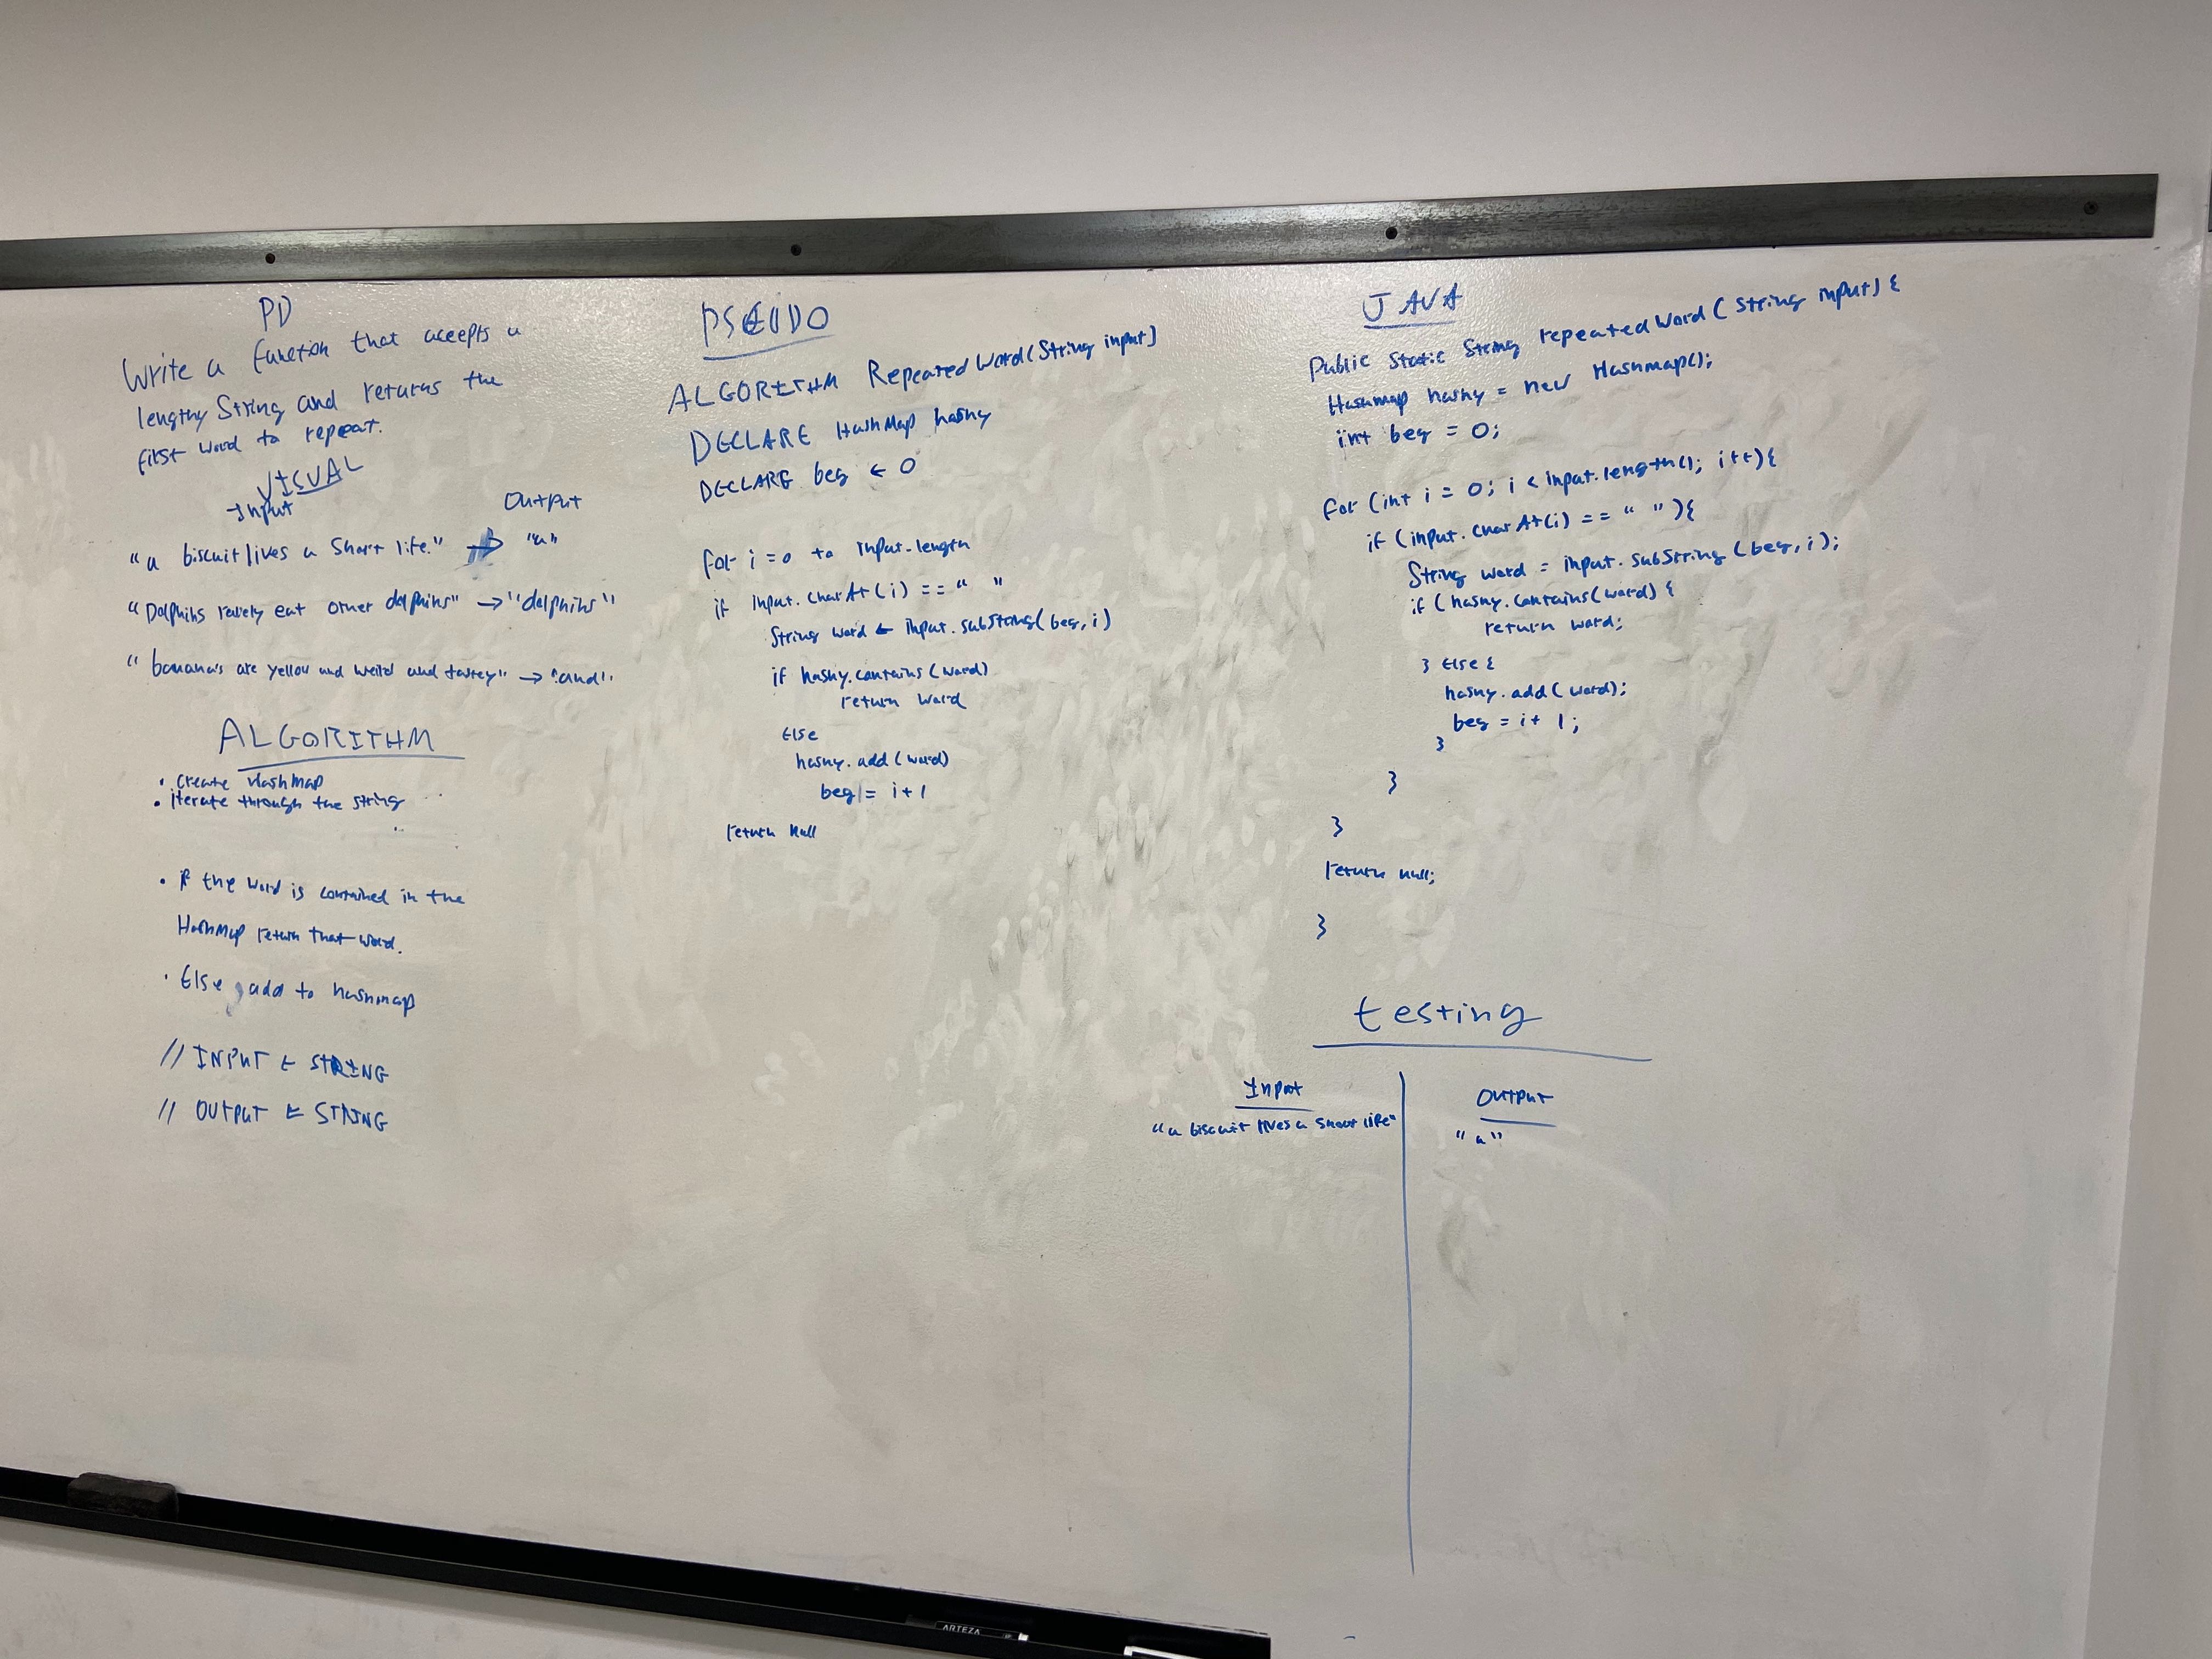 PD
Write a function that accepts a
lengthy String and returns the
first word to repeat.
VISUAL
Input
Output
"a biscuit lives a short life." → "a"
"Dolphins rarely eat other dolphins" → "dolphins"
"bananas are yellow and weird and tastey" → "and"
ALGORITHM
• create HashMap
• iterate through the string
• if the word is contained in the
HashMap return that word.
• Else, add to hashmap
// INPUT ← STRING
// OUTPUT ← STRING
PSEUDO
ALGORITHM RepeatedWord(String input)
DECLARE HashMap hashy
DECLARE beg ← 0
for i = 0 to input.length
if input.charAt(i) == " "
String word ← input.substring(beg, i)
if hashy.contains(word)
return word
Else
hashy.add(word)
beg = i+1
return null
JAVA
Public Static String repeatedWord(String input) {
Hashmap hashy = new Hashmap();
int beg = 0;
for (int i = 0; i < input.length(); i++){
if (input.charAt(i) == " "){
String word = input.subString(beg, i);
if (hashy.contains(word) {
return word;
} Else {
hashy.add(word);
beg = i + 1;
}
}
}
return null;
}
testing
Input
Output
"a biscuit lives a short life"
"a"
ARTEZA